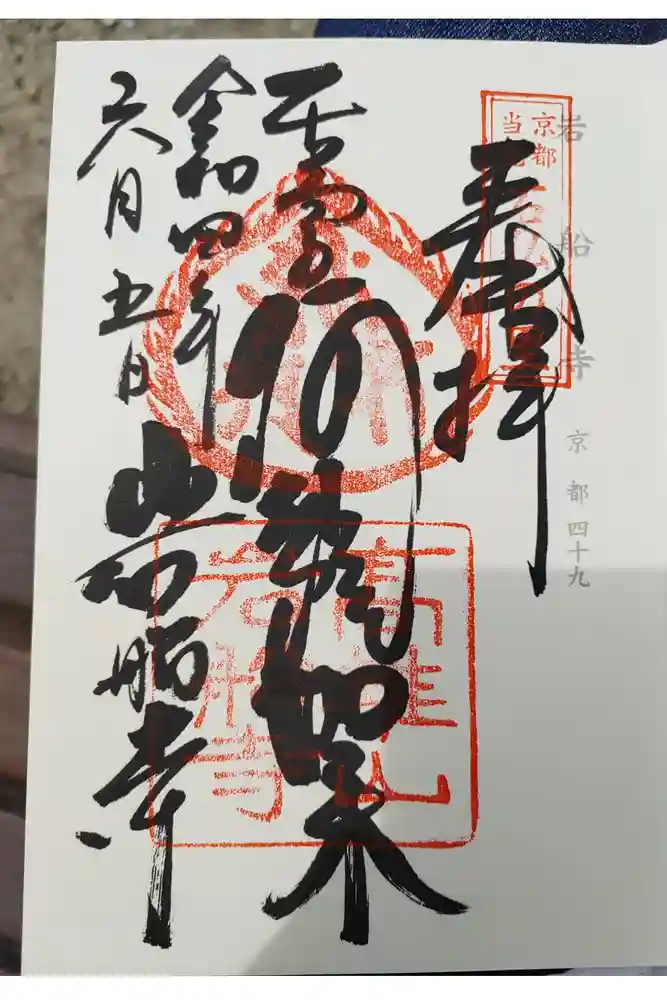 岩船寺 京都四十九
京都
奉拝
阿弥陀如来
高雄山
岩船寺
令和四年
六月五日
岩船寺